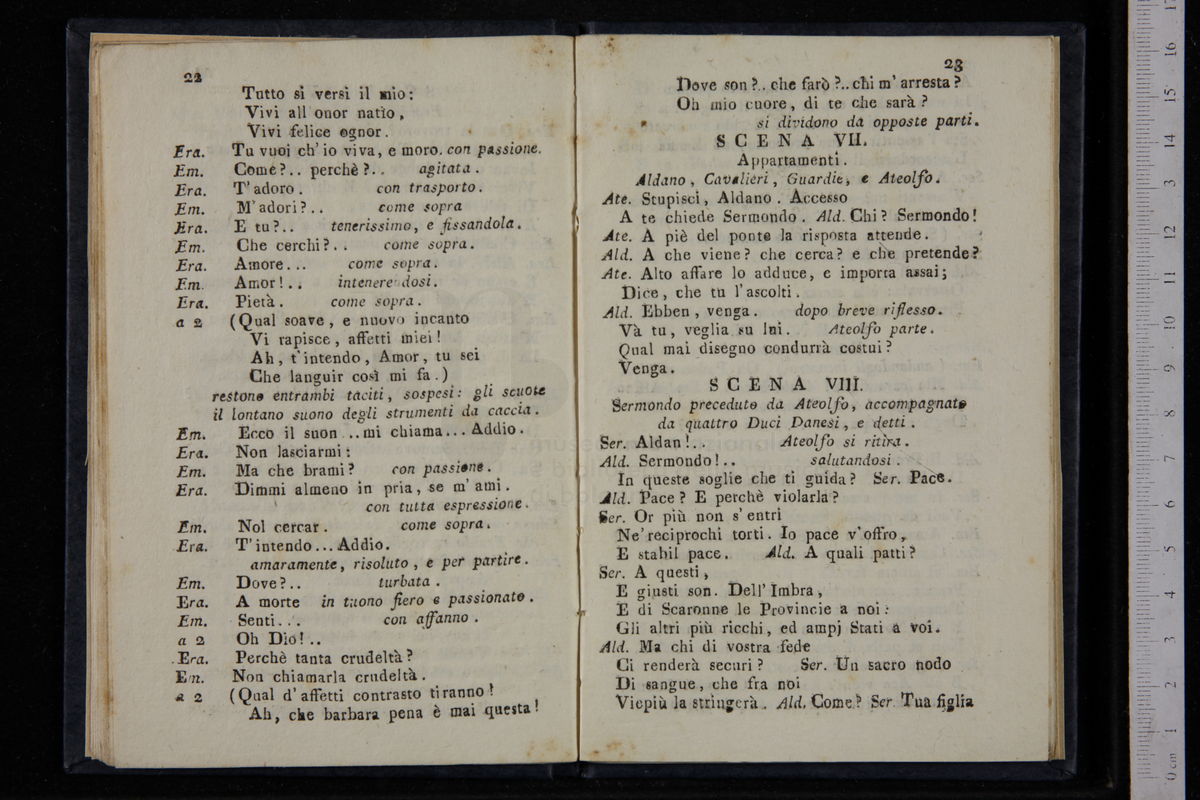 22
Tutto si versi il mio:
Vivi all' onor natìo,
Vivi felice ognor.
Era. Tu vuoi ch' io viva, e moro. con passione.
Em. Come?.. perchè?.. agitata.
Era. T' adoro. con trasporto.
Em. M' adori?.. come sopra
Era. E tu?.. tenerissimo, e fissandola.
Em. Che cerchi?.. come sopra.
Era. Amore... come sopra.
Em. Amor!.. intenerendosi.
Era. Pietà. come sopra.
a 2 (Qual soave, e nuovo incanto
Vi rapisce, affetti miei!
Ah, t' intendo, Amor, tu sei
Che languir così mi fa.)
restono entrambi taciti, sospesi: gli scuote
il lontano suono degli strumenti da caccia.
Em. Ecco il suon ..mi chiama... Addio.
Era. Non lasciarmi:
Em. Ma che brami? con passione.
Era. Dimmi almeno in pria, se m' ami.
con tutta espressione.
Em. Nol cercar. come sopra.
Era. T' intendo... Addio.
amaramente, risoluto, e per partire.
Em. Dove?.. turbata.
Era. A morte in tuono fiero e passionato.
Em. Senti... con affanno.
a 2 Oh Dio!..
Era. Perchè tanta crudeltà?
Em. Non chiamarla crudeltà.
a 2 (Qual d' affetti contrasto tiranno!
Ah, che barbara pena è mai questa!
23
Dove son?.. che farò?.. chi m' arresta?
Oh mio cuore, di te che sarà?
si dividono da opposte parti.
SCENA VII.
Appartamenti.
Aldano, Cavalieri, Guardie, e Ateolfo.
Ate. Stupisci, Aldano. Accesso
A te chiede Sermondo. Ald. Chi? Sermondo!
Ate. A piè del ponte la risposta attende.
Ald. A che viene? che cerca? e che pretende?
Ate. Alto affare lo adduce, e importa assai;
Dice, che tu l' ascolti.
Ald. Ebben, venga. dopo breve riflesso.
Và tu, veglia su lui. Ateolfo parte.
Qual mai disegno condurrà costui?
Venga.
SCENA VIII.
Sermondo preceduto da Ateolfo, accompagnato
da quattro Duci Danesi, e detti.
Ser. Aldan!.. Ateolfo si ritira.
Ald. Sermondo!.. salutandosi.
In queste soglie che ti guida? Ser. Pace.
Ald. Pace? E perchè violarla?
Ser. Or più non s' entri
Ne' reciprochi torti. Io pace v' offro,
E stabil pace. Ald. A quali patti?
Ser. A questi,
E giusti son. Dell' Imbra,
E di Scaronne le Provincie a noi:
Gli altri più ricchi, ed ampj Stati a voi.
Ald. Ma chi di vostra fede
Ci renderà securi? Ser. Un sacro nodo
Di sangue, che fra noi
Viepiù la stringerà. Ald. Come? Ser. Tua figlia